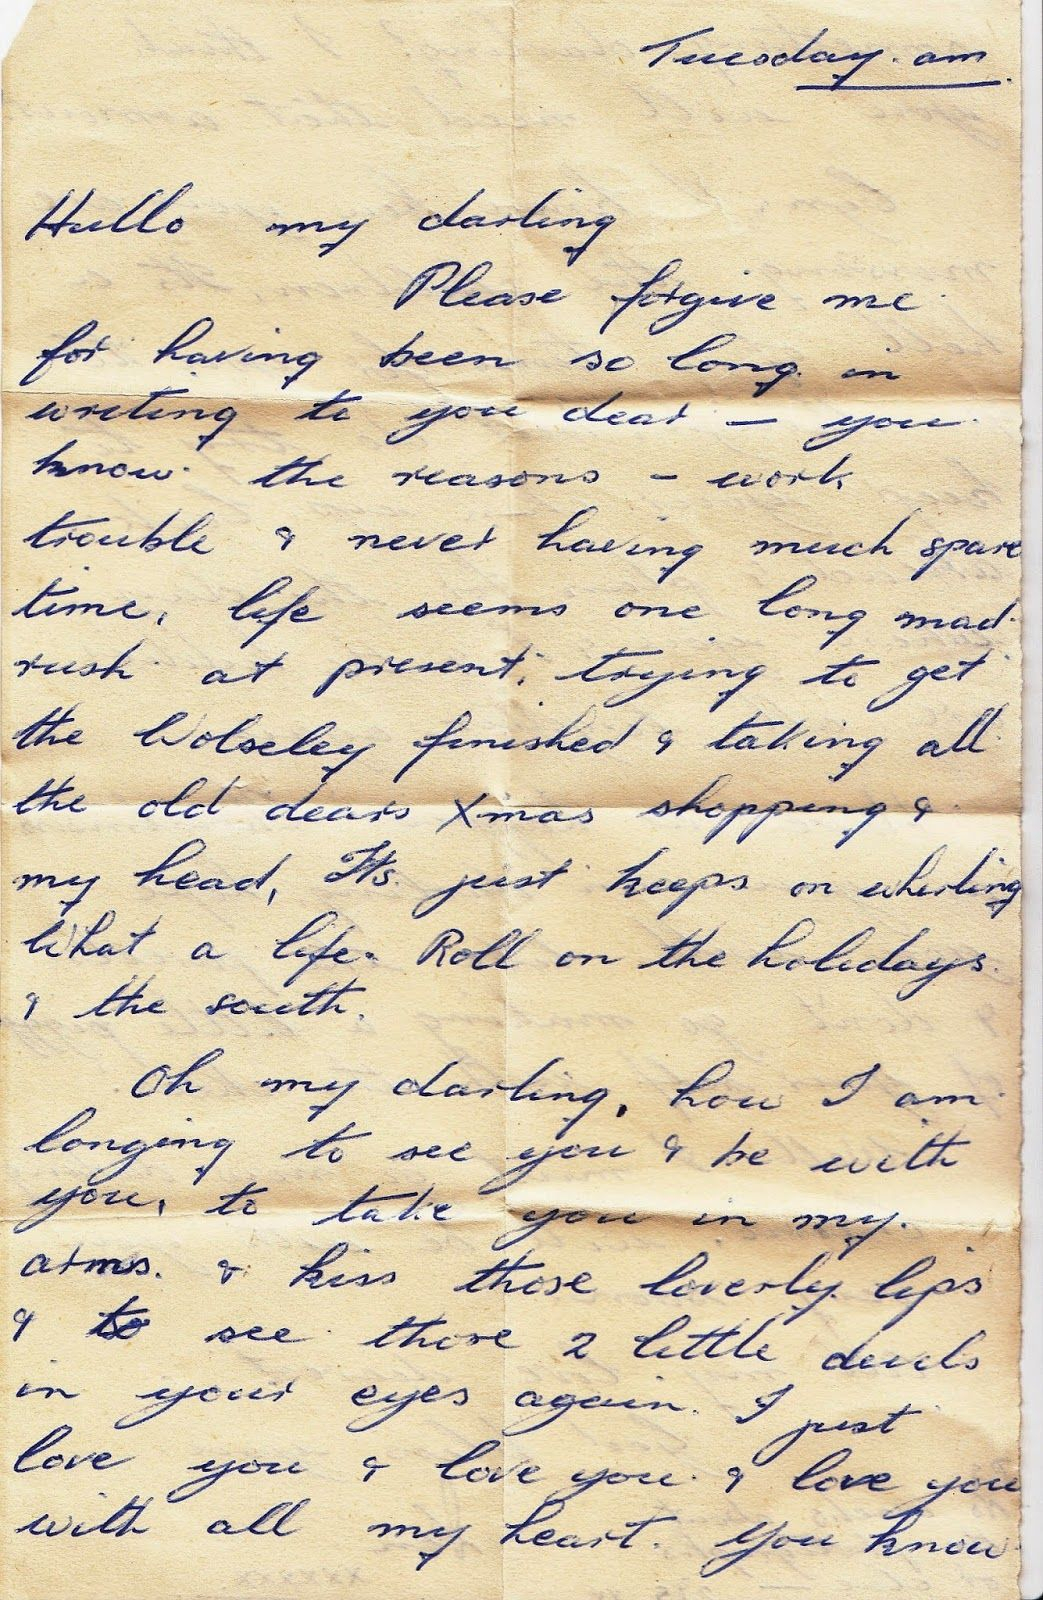 Tuesday. am.
Hullo my darling
Please forgive me
for having been so long in
writing to you dear – you
know the reasons – work
trouble & never having much spare
time, life seems one long mad
rush at present, trying to get
the Wolseley finished & taking all
the old dears Xmas shopping &
my head, Its just keeps on whirling
What a life. Roll on the holidays
& the south.
Oh my darling, how I am
longing to see you & be with
you, to take you in my
arms. & kiss those loverly lips
& to see those 2 little devils
in your eyes again. I just
love you & love you & love you
with all my heart. You know